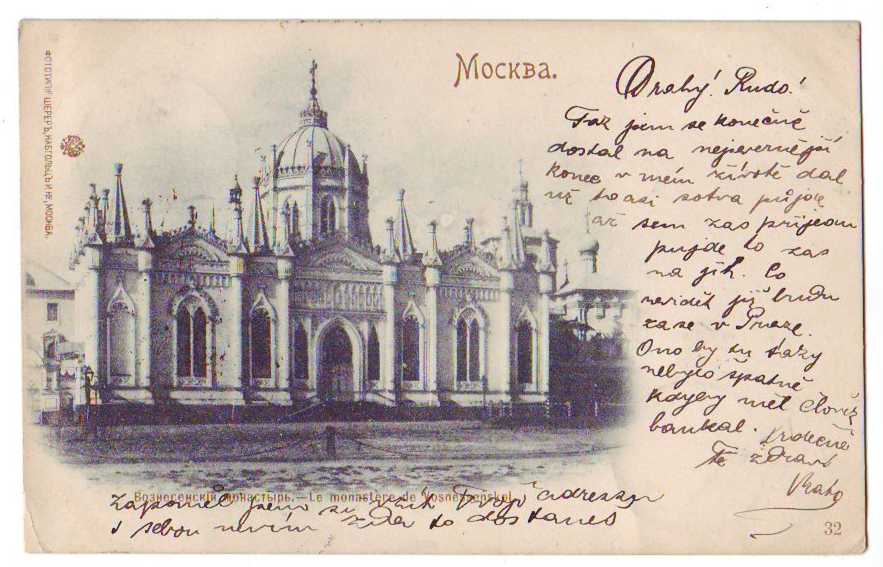 Москва.
ФОТОТИПІЯ ШЕРЕРЪ, НАБГОЛЬЦЪ И Кº, МОСКВА.
Drahý! Rudo!
Tak jsem se konečně
dostal na nejsevernější
konec v mém životě dal
už to asi sotva půjde
až sem zas přijedu
pujde to zas
na jih. Co
nevidět již budu
zase v Praze.
Ono by tu taky
nebylo špatně
kdyby měl člověk
bankal. Srdečně
Tě zdraví
Вознесенскій монастырь. — Le monastère de Vosnessenskoi.
zapomněl jsem si vzít Tvoji adressu
s sebou nevím zda to dostaneš
32